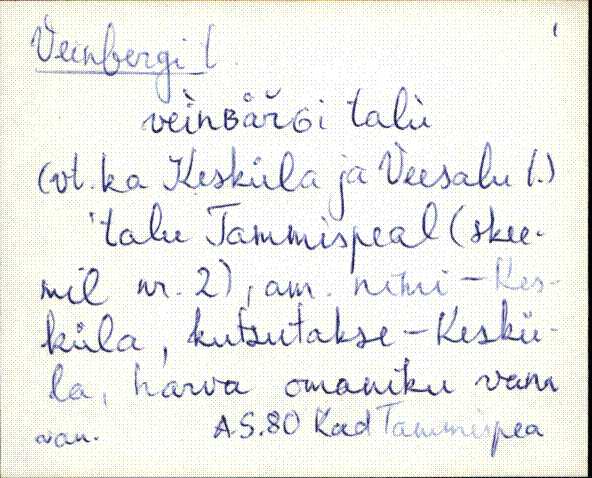 Veinbergi t.
vèinʙå̆rɢi talù
(vt. ka Kesküla ja Veesalu t.)
talu Tammispeal (skee-
mil nr. 2), am. nimi – Kes-
küla, kutsutakse – Keskü-
la, harva omaniku vana
A.S.80 Kad Tammispea